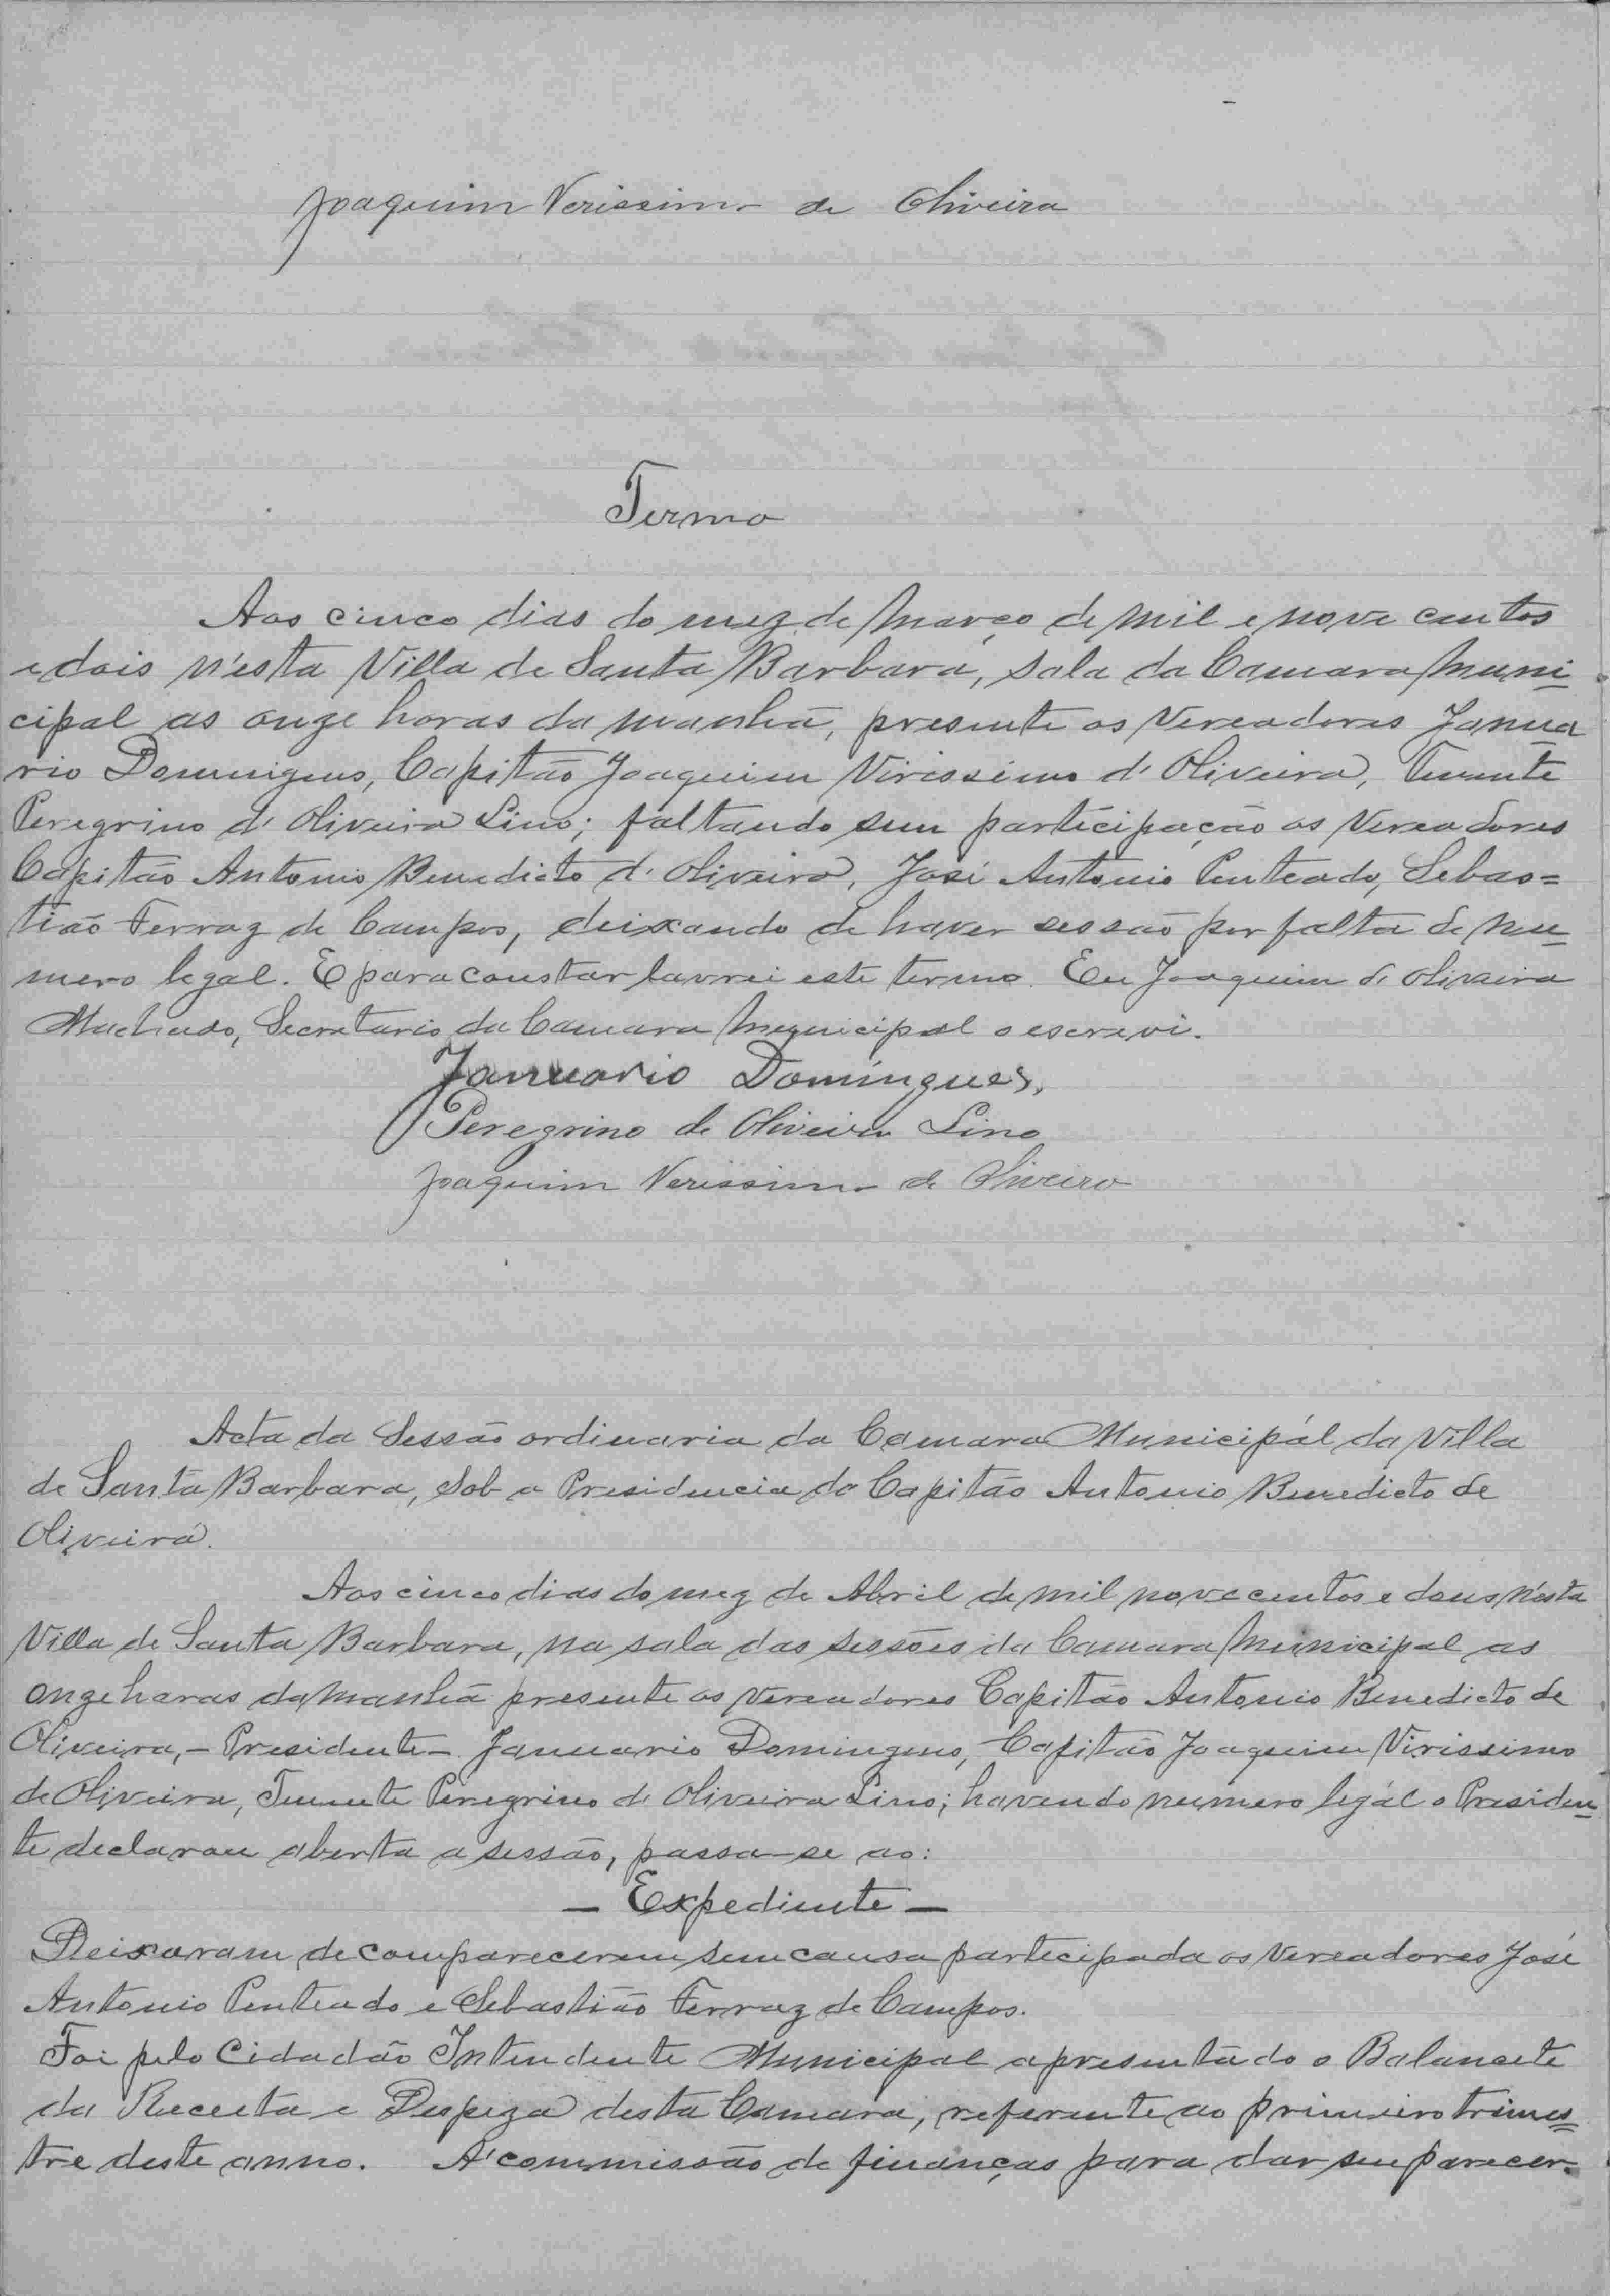 Joaquim Verissimo de Oliveira
Termo
Aos cinco dias do mez de Março de mil e nove centos
e dois n'esta Villa de Santa Barbara, sala da Camara Muni
cipal as onze horas da manhã, presente os Vereadores Janua
rio Domingues, Capitão Joaquim Virissimo d'Oliveira, Tenente
Peregrino d'Oliveira Lino; faltando sem participação os Vereadores
Capitão Antonio Benedicto d'Oliveira, José Antonio Penteado, Sebas=
tião Ferraz de Campos, deixando de haver sessão por falta de nu
mero legal. E para constar lavrei este termo. Eu Joaquim de Oliveira
Machado, Secretario da Camara Municipal o escrevi.
Januario Domingues,
Peregrino de Oliveira Lino
Joaquim Verissimo de Oliveira
Acta da Sessão ordinaria da Camara Municipál da Villa
de Santa Barbara, sob a Presidencia do Capitão Antonio Benedicto de
Oliveira.
Aos cinco dias do mez de Abril de mil nove centos e dous n'esta
Villa de Santa Barbara, na sala das sessões da Camara Municipal as
onze horas da manhã presente os Vereadores Capitão Antonio Benedicto de
Oliveira, - Presidente - Januario Domingues, Capitão Joaquim Virissimo
de Oliveira, Tenente Peregrino de Oliveira Lino; havendo número legál o Presiden
te declarou aberta a sessão, passa-se ao:
- Expediente -
Deixaram de comparecerem sem causa participada os Vereadores José
Antonio Penteado e Sebastião Ferraz de Campos.
Foi pelo Cidadão Intendente Municipal apresentado o Balancete
da Receita e Despeza desta Camara, referente ao primeiro trimes=
tre deste anno. A' commissão de finanças para dar seu parecer.